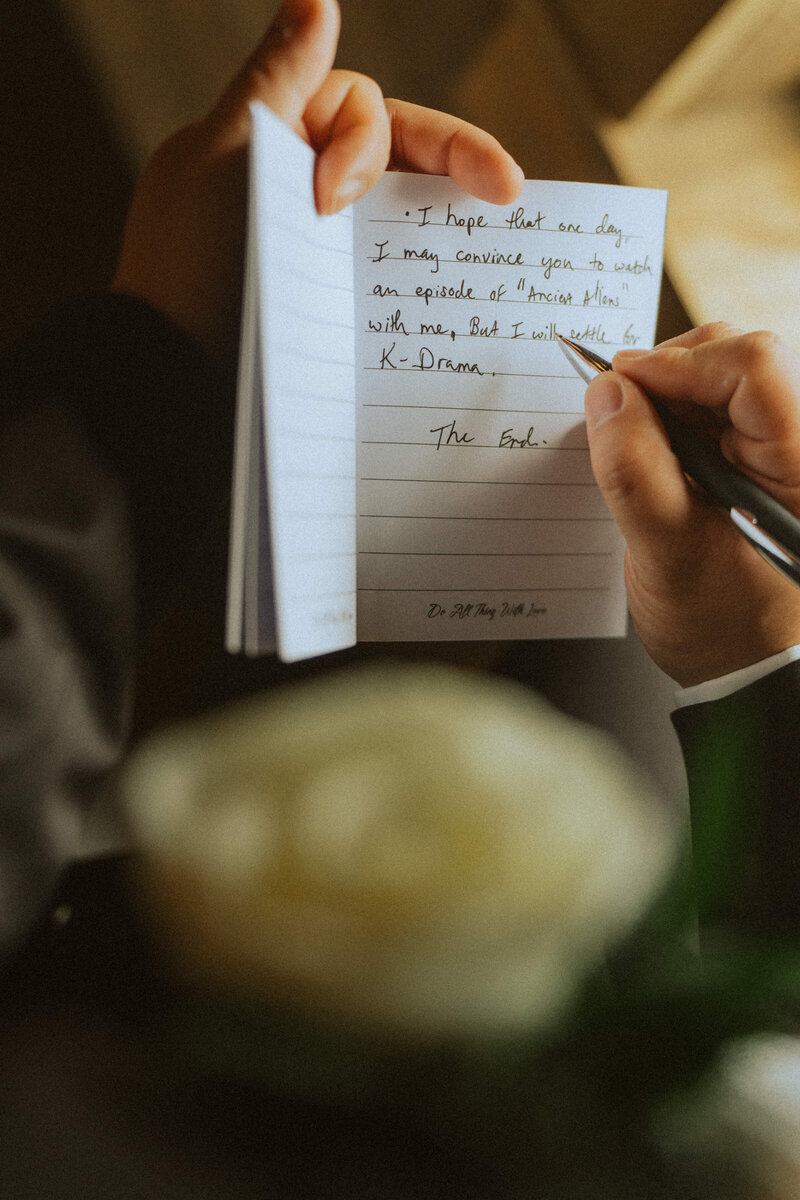 • I hope that one day,
I may convince you to watch
an episode of "Ancient Aliens"
with me, But I will settle for
K-Drama.
The End.
Do All Thing With Love